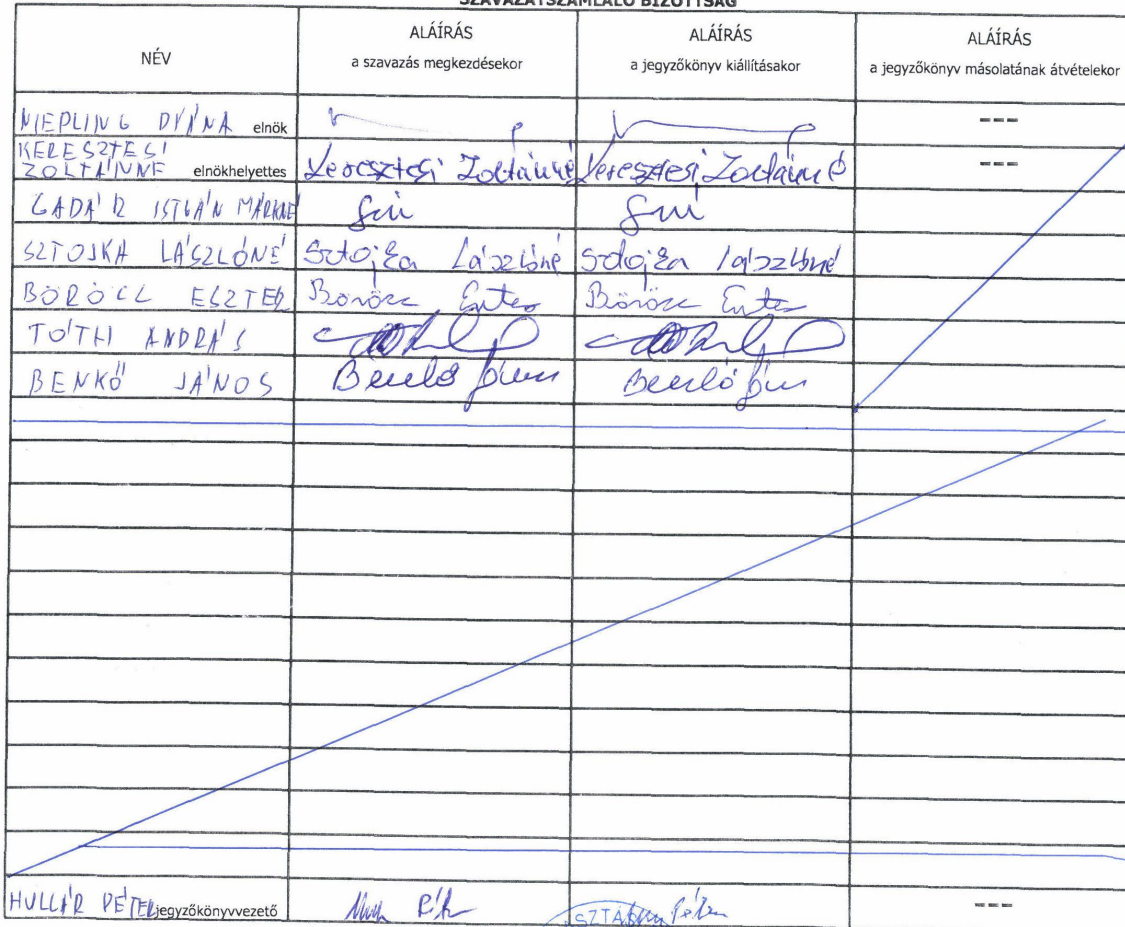 SZAVAZATSZÁMLÁLÓ BIZOTTSÁG
NÉV
ALÁÍRÁS
a szavazás megkezdésekor
ALÁÍRÁS
a jegyzőkönyv kiállításakor
ALÁÍRÁS
a jegyzőkönyv másolatának átvételekor
NIEPLING DIÁNA elnök
---
KERESZTESI
ZOLTÁNNÉ elnökhelyettes Keresztesi Zoltánné Keresztesi Zoltánné
---
GADÁR ISTVÁN MÁRKNÉ
SZTOJKA LÁSZLÓNÉ Sztojka Lászlóné Sztojka Lászlóné
BÖRÖCZ ESZTER Böröcz Eszter Böröcz Eszter
TÓTH ANDRÁS
BENKŐ JÁNOS Benkő János Benkő János
HULLÁR PÉTER jegyzőkönyvvezető
---